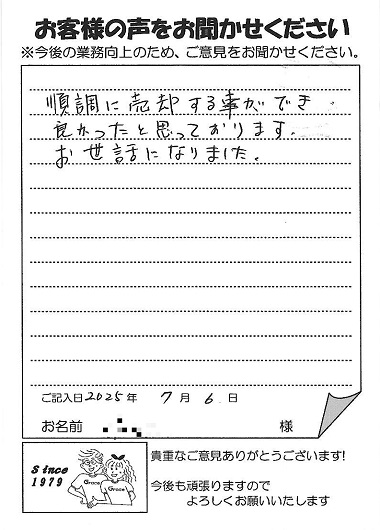 お客様の声をお聞かせください
※今後の業務向上のため、ご意見をお聞かせください。
順調に売却する事ができ
良かったと思っております。
お世話になりました。
ご記入日 2025年 7月 6日
お名前 様
Since
1979
Grace
Grace
貴重なご意見ありがとうございます!
今後も頑張りますので
よろしくお願いいたします